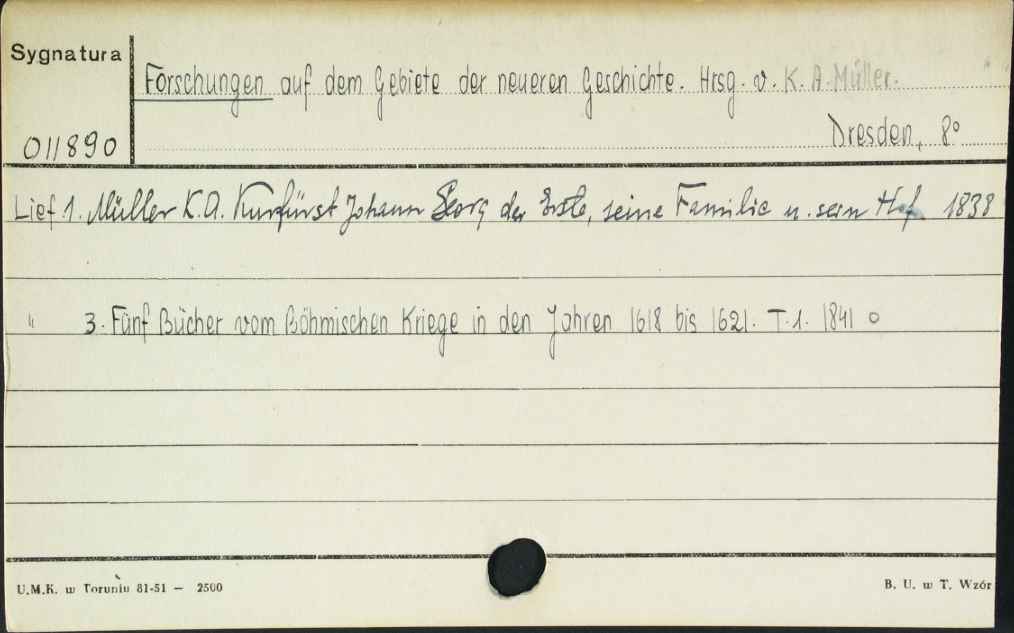 Sygnatura
Forschungen auf dem Gebiete der neueren Geschichte. Hrsg. v. K. A. Müller.
011890
Dresden, 8°
Lief 1. Müller K.A. Kurfürst Johann Georg der Erste, seine Familie u. sein Hof. 1838
" 3. Fünf Bücher vom Böhmischen Kriege in den Jahren 1618 bis 1621. T.1. 1841 o
U.M.K. w Toruniu 81-51 — 2500
B. U. w T. Wzór